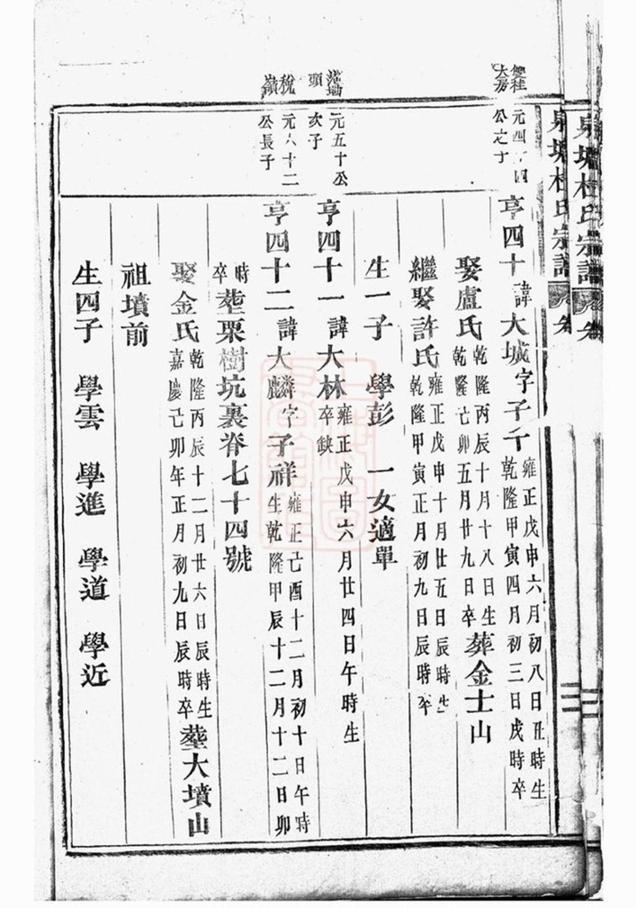 泉塘杜氏宗譜 卷
雙桂大房 元四十四公之子
亨四十 諱大城字子千 雍正戊申六月初八日丑時生 乾隆甲寅四月初三日戌時卒
娶盧氏 乾隆丙辰十月十八日生 乾隆己卯五月廿九日卒 葬金士山
繼娶許氏 雍正戊申十月廿五日辰時生 乾隆甲寅正月初九日辰時卒
生一子 學彭 一女適單
頭 元五十公次子
亨四十一 諱大林 雍正戊申六月廿四日午時生 卒缺
稅嶺 元六十二公長子
亨四十二 諱大麟字子祥 雍正己酉十二月初十日午時生 乾隆甲辰十二月十二日卯
時卒 塟栗樹坑裏脊七十四號
娶金氏 乾隆丙辰十二月廿六日辰時生 嘉慶己卯年正月初九日辰時卒 塟大墳山
祖墳前
生四子 學雲 學進 學道 學近